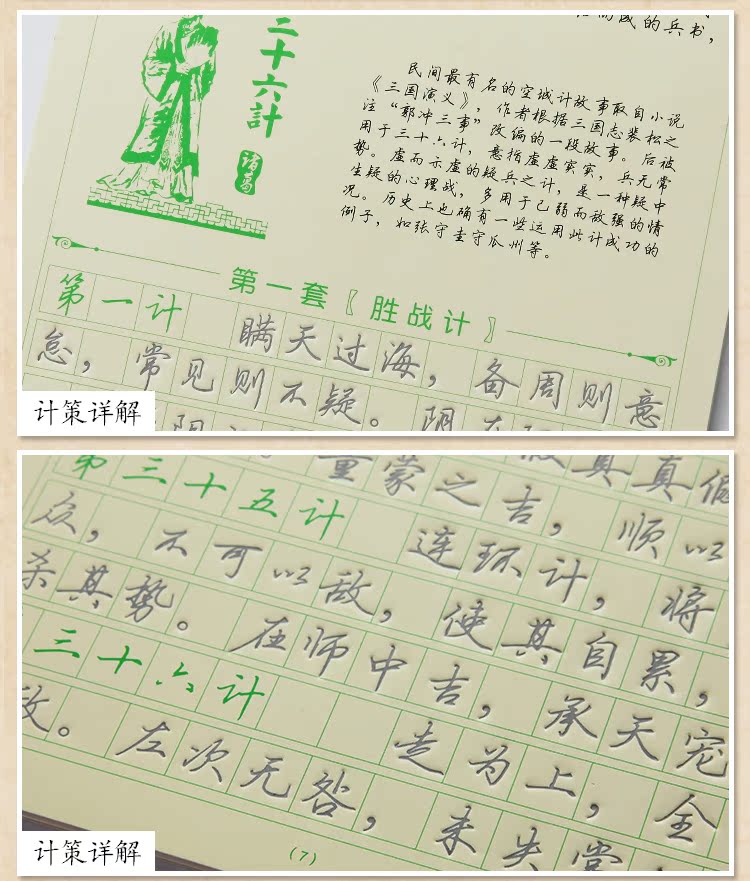 而成的兵书，
三十六計
诸葛
民间最有名的空城计故事取自小说
《三国演义》，作者根据三国志裴松之
注“郭冲三事”改编的一段故事。后被
用于三十六计，意指虚虚实实，兵无常
势。虚而示虚的疑兵之计，是一种疑中
生疑的心理战，多用于己弱而敌强的情
况。历史上也确有一些运用此计成功的
例子，如张守圭守瓜州等。
第一套〖胜战计〗
第一计 瞒天过海，备周则意
怠，常见则不疑。阴在
阴
计策详解
真真假
童蒙之吉，顺以
第三十五计 连环计，将
众，不可以敌，使其自累，
杀其势。在师中吉，承天宠
三十六计 走为上，全
。左次无咎，未失常
(7)
计策详解